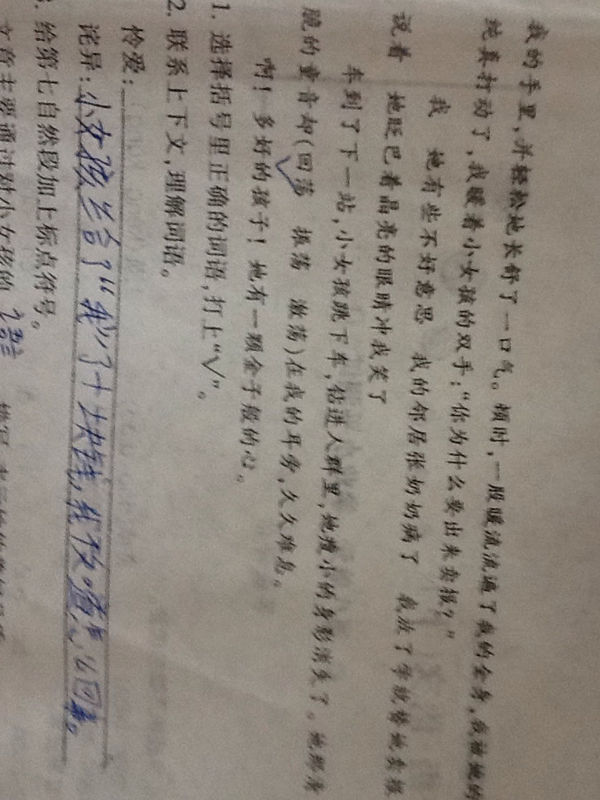 我的手里，并轻松地长舒了一口气。顿时，一股暖流流遍了我的全身，我被她的
纯真打动了，我暖着小女孩的双手：“你为什么要出来卖报？”
我 她有些不好意思 我的邻居张奶奶病了 我放了学就替她卖报
说着 她眨巴着晶亮的眼睛冲我笑了
车到了下一站，小女孩跳下车，钻进人群里，她瘦小的身影消失了。她那清
脆的童音却（回荡 振荡 激荡）在我的耳旁，久久难忘。
啊！多好的孩子！她有一颗金子般的心。
1. 选择括号里正确的词语，打上“√”。
2. 联系上下文，理解词语。
怜爱：
诧异：小女孩给了“我”了十块钱，我很
给第七自然段加上标点符号。
文章主要通过对小女孩的